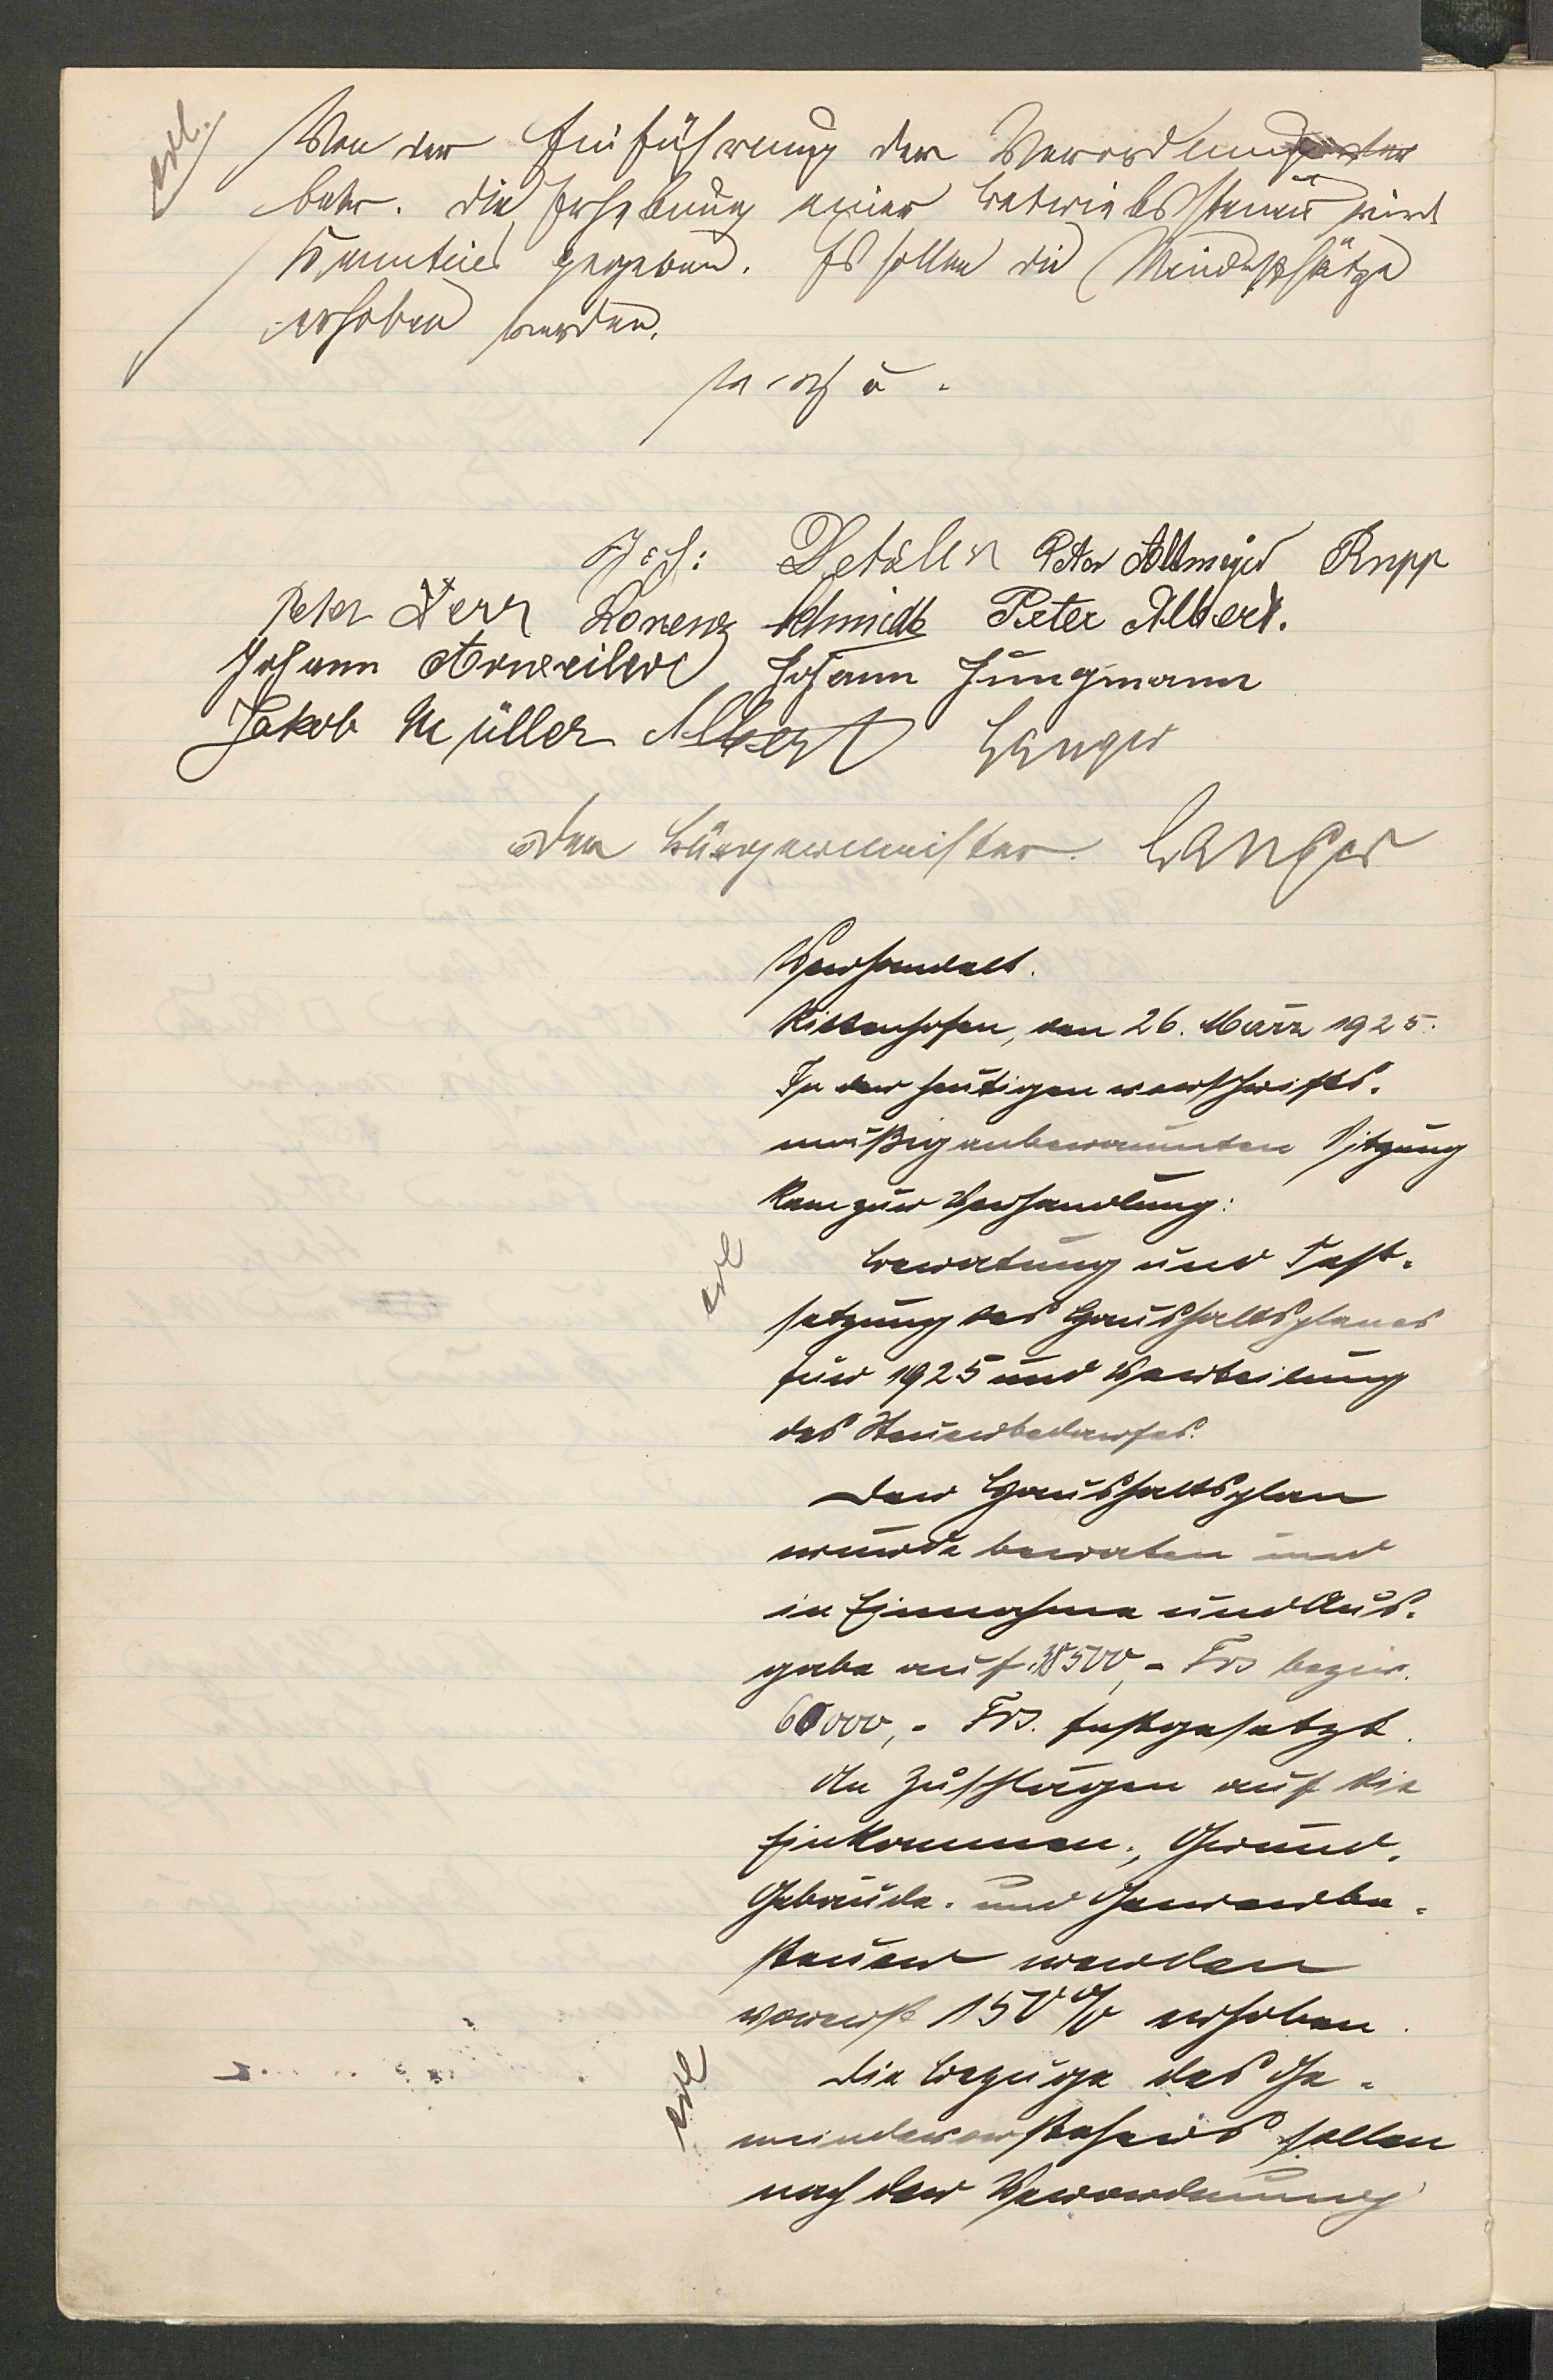 erl.
Von der Einführung der Verordnung der
betr. die Erhebung einer Betriebssteuer wird
Kenntnis gegeben. Es sollen die Mindestsätze
erhoben werden.
v. g. u.
Joh: Peter Altmeyer Rupp
Peter Herr Lorenz Schmidt Peter Albert.
Johann Arweiler Johann Jungmann
Jakob Müller Albert Langer
Der Bürgermeister. Langer
Verhandelt.
Rittenhofen, den 26. März 1925.
In der heutigen vorschrifts-
mäßig anberaumten Sitzung
kam zur Verhandlung:
erl
Beratung und Fest-
setzung des Haushaltsplanes
für 1925 und Verteilung
des Steuerbedarfes.
Der Haushaltsplan
wurde beraten und
in Einnahme und Aus-
gabe auf 38500,- Frs bezw.
60000,- Frs. festgesetzt.
An Zuschlägen auf die
Einkommen-, Grund-
Gebäude- und Gewerbe-
steuer werden
vorerst 150% erhoben.
erl
Die Bezüge des Ge-
meindevorstehers sollen
nach der Verordnung